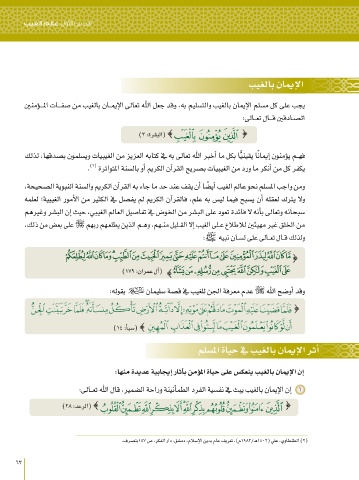 الدرس الأول: عالم الغيب
الإيمان بالغيب
يجب على كل مسلم الإيمان بالغيب والتسليم به، وقد جعل الله تعالى الإيمان بالغيب من صفات المؤمنين
الصادقين قال تعالى:
﴿ الَّذِينَ يُؤْمِنُونَ بِالْغَيْبِ ﴾ (البقرة: ٣)
فهم يؤمنون إيمانًا يقينيًّا بكل ما أخبر الله تعالى به في كتابه العزيز من الغيبيات ويسلمون بصدقها، لذلك
يكفر كل من أنكر ما ورد من الغيبيات بصريح القرآن الكريم أو بالسنة المتواترة (١).
ومن واجب المسلم نحو عالم الغيب أيضًا أن يقف عند حد ما جاء به القرآن الكريم والسنة النبوية الصحيحة،
ولا يترك لعقله أن يسبح فيما ليس به علم، فالقرآن الكريم لم يفصل في الكثير من الأمور الغيبية؛ لعلمه
سبحانه وتعالى بأنه لا فائدة تعود على البشر من الخوض في تفاصيل العالم الغيبي، حيث إن البشر وغيرهم
من الخلق غير مهيئين للاطلاع على الغيب إلا القليل منهم، وهم الذين يطلعهم ربهم ﷻ على بعض من ذلك،
ولذلك قال تعالى على لسان نبيه ﷺ:
﴿ مَّا كَانَ اللَّهُ لِيَذَرَ الْمُؤْمِنِينَ عَلَىٰ مَا أَنتُمْ عَلَيْهِ حَتَّىٰ يَمِيزَ الْخَبِيثَ مِنَ الطَّيِّبِ وَمَا كَانَ اللَّهُ لِيُطْلِعَكُمْ
عَلَى الْغَيْبِ وَلَٰكِنَّ اللَّهَ يَجْتَبِي مِن رُّسُلِهِ مَن يَشَاءُ ﴾ (آل عمران: ١٧٩)
وقد أوضح الله ﷻ عدم معرفة الجن للغيب في قصة سليمان بقوله:
﴿ فَلَمَّا قَضَيْنَا عَلَيْهِ الْمَوْتَ مَا دَلَّهُمْ عَلَىٰ مَوْتِهِ إِلَّا دَابَّةُ الْأَرْضِ تَأْكُلُ مِنسَأَتَهُ فَلَمَّا خَرَّ تَبَيَّنَتِ الْجِنُّ
أَن لَّوْ كَانُوا يَعْلَمُونَ الْغَيْبَ مَا لَبِثُوا فِي الْعَذَابِ الْمُهِينِ ﴾ (سبأ: ١٤)
أثر الإيمان بالغيب في حياة المسلم
إن الإيمان بالغيب ينعكس على حياة المؤمن بآثار إيجابية عديدة منها:
١ إن الإيمان بالغيب يبث في نفسية الفرد الطمأنينة وراحة الضمير، قال الله تعالى:
﴿ الَّذِينَ آمَنُوا وَتَطْمَئِنُّ قُلُوبُهُم بِذِكْرِ اللَّهِ أَلَا بِذِكْرِ اللَّهِ تَطْمَئِنُّ الْقُلُوبُ ﴾ (الرعد: ٢٨)
٦٣